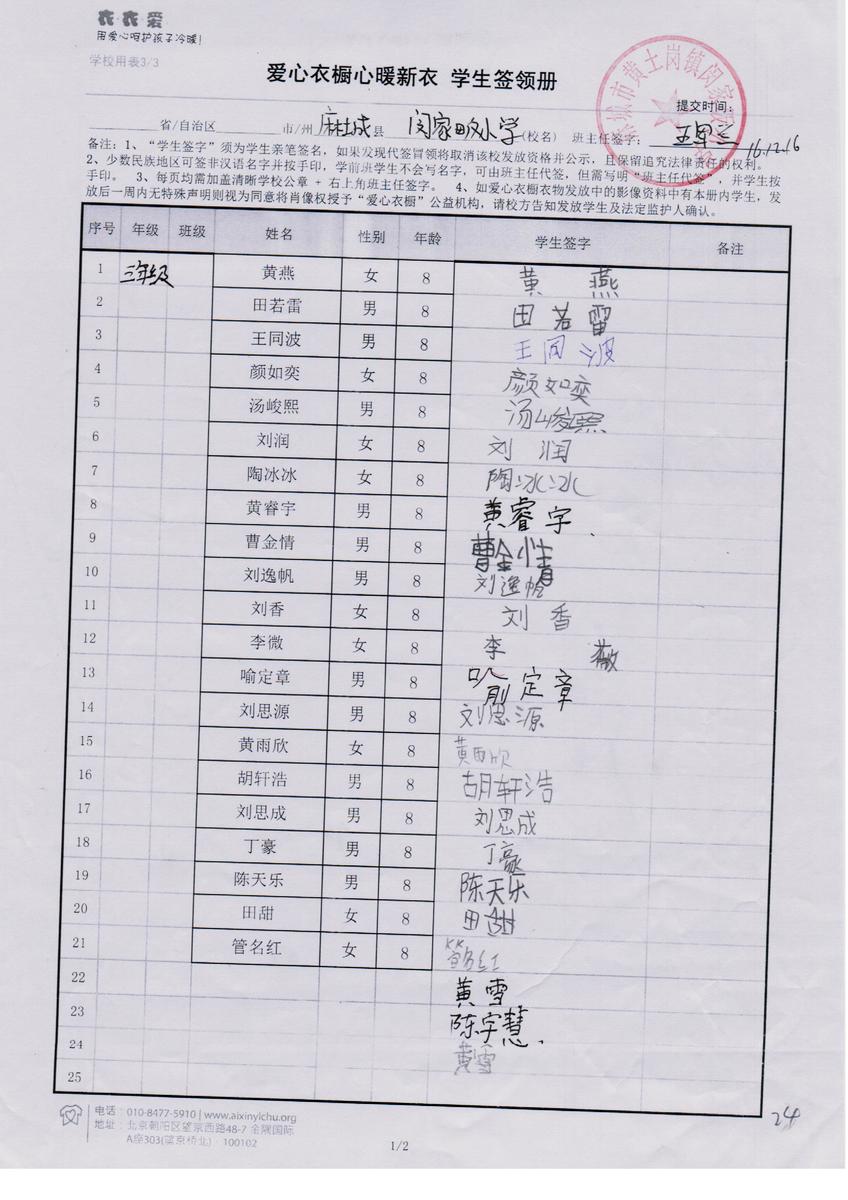 衣衣爱
用爱心呵护孩子冷暖!
学校用表3/3
爱心衣橱心暖新衣 学生签领册
提交时间:
省/自治区 市/州 麻城 县 闵家畈小学 (校名) 班主任签字: 16.12.16
备注: 1、“学生签字”须为学生亲笔签名,如果发现代签冒领将取消该校发放资格并公示,且保留追究法律责任的权利。
2、少数民族地区可签非汉语名字并按手印,学前班学生不会写名字,可由班主任代签,但需写明“班主任代签”,并学生按
手印。 3、每页均需加盖清晰学校公章 + 右上角班主任签字。 4、如爱心衣橱衣物发放中的影像资料中有本册内学生,发
放后一周内无特殊声明则视为同意将肖像权授予“爱心衣橱”公益机构,请校方告知发放学生及法定监护人确认。
序号 年级 班级 姓名 性别 年龄 学生签字 备注
1 三年级 黄燕 女 8 黄燕
2 田若雷 男 8 田若雷
3 王同波 男 8 王同波
4 颜如奕 女 8 颜如奕
5 汤峻熙 男 8 汤峻熙
6 刘润 女 8 刘润
7 陶冰冰 女 8 陶冰冰
8 黄睿宇 男 8 黄睿宇
9 曹金情 男 8 曹金情
10 刘逸帆 男 8 刘逸帆
11 刘香 女 8 刘香
12 李微 女 8 李薇
13 喻定章 男 8 喻定章
14 刘思源 男 8 刘思源
15 黄雨欣 女 8 黄雨欣
16 胡轩浩 男 8 胡轩浩
17 刘思成 男 8 刘思成
18 丁豪 男 8 丁豪
19 陈天乐 男 8 陈天乐
20 田甜 女 8 田甜
21 管名红 女 8 管名红
22 黄雪
23 陈宇慧
24 黄雪
25
电话:010-8477-5910 | www.aixinyichu.org
地址:北京朝阳区望京西路48-7 金隅国际
A座303(望京桥北)· 100102
1/2
24